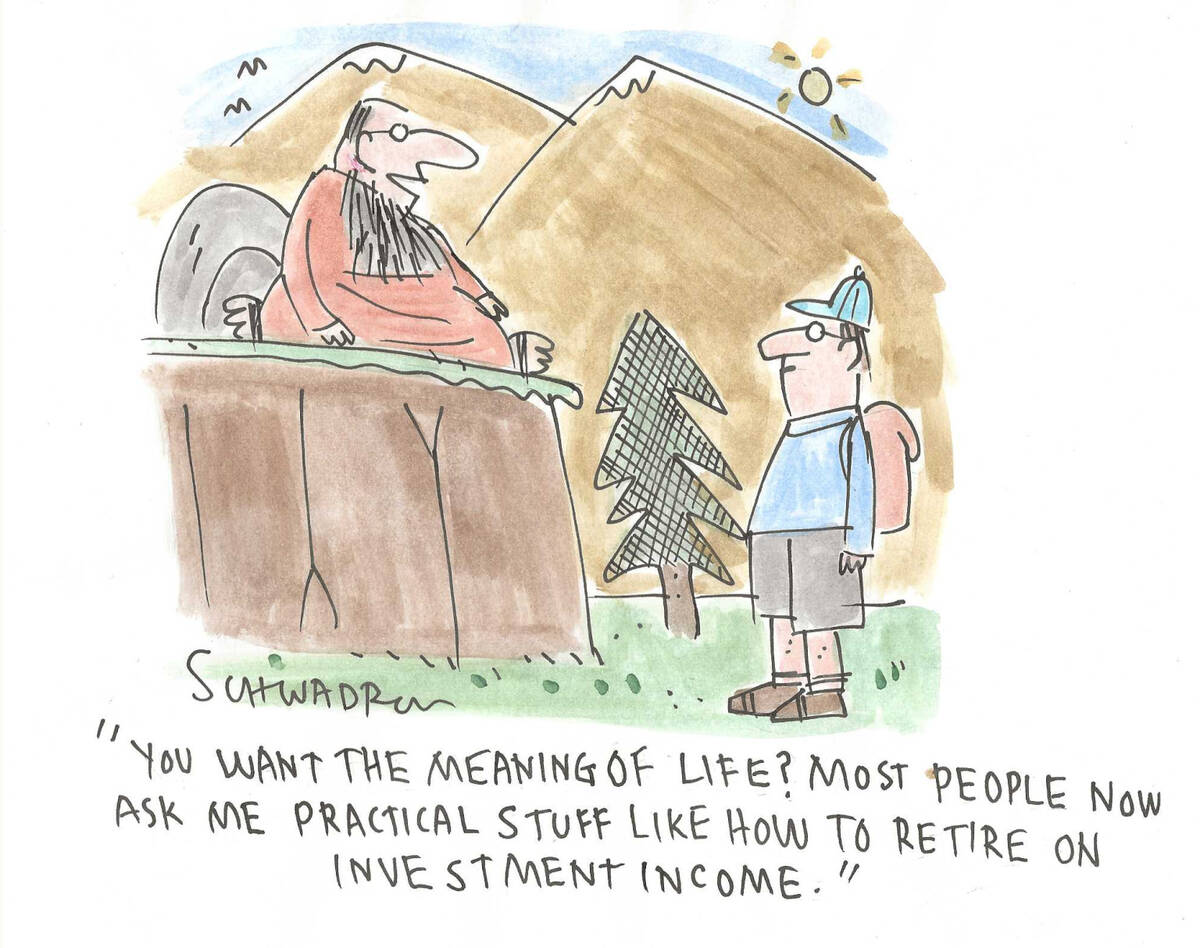 SCHWADRON
"YOU WANT THE MEANING OF LIFE? MOST PEOPLE NOW
ASK ME PRACTICAL STUFF LIKE HOW TO RETIRE ON
INVESTMENT INCOME."